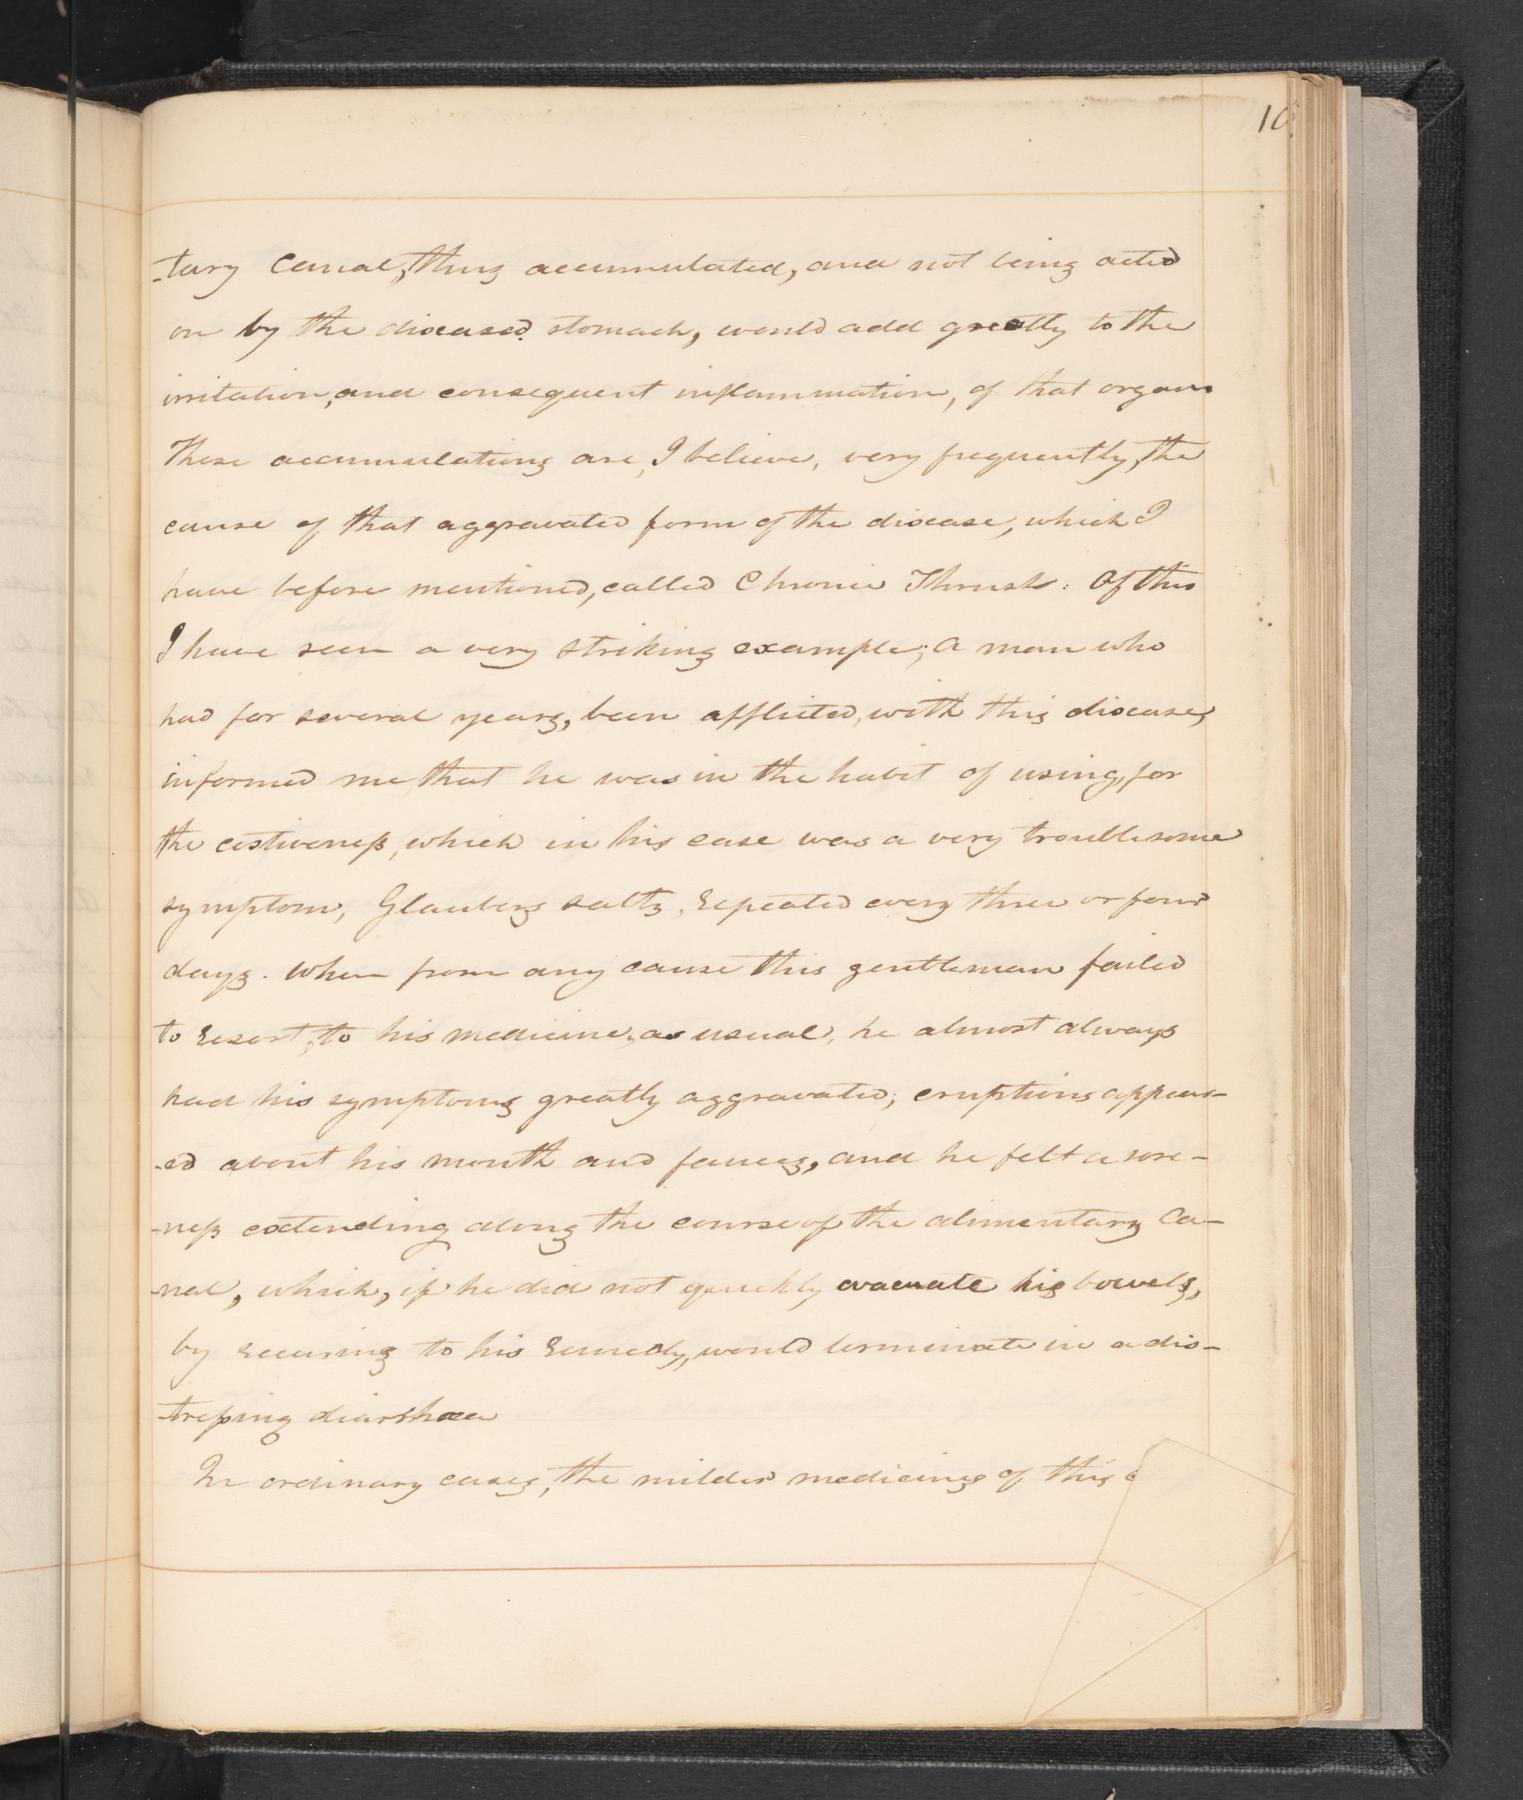 10
-tary Canal, thus accumulated, and not being acted
on by the diseased stomach, would add greatly to the
irritation, and consequent inflammation, of that organ
These accumulations are, I believe, very frequently, the
cause of that aggravated form of the disease, which I
have before mentioned, called Chronic Thrush: Of this
I have seen a very striking example; A man who
had for several years, been afflicted, with this disease,
informed me, that he was in the habit of using, for
the costiveness, which in his case was a very troublesome
symptom, Glaubers salts, repeated every three or four
days. When from any cause this gentleman failed
to resort, to his medicine, as usual, he almost always
had his symptoms greatly aggravated; eruptions appear-
-ed about his mouth and fauces, and he felt a sore-
-ness extending along the course of the alimentary Ca-
-nal, which, if he did not quickly evacuate his bowels,
by recuring to his remedy, would terminate in a dis-
-tressing diarrhœa
In ordinary cases, the milder medicines of this